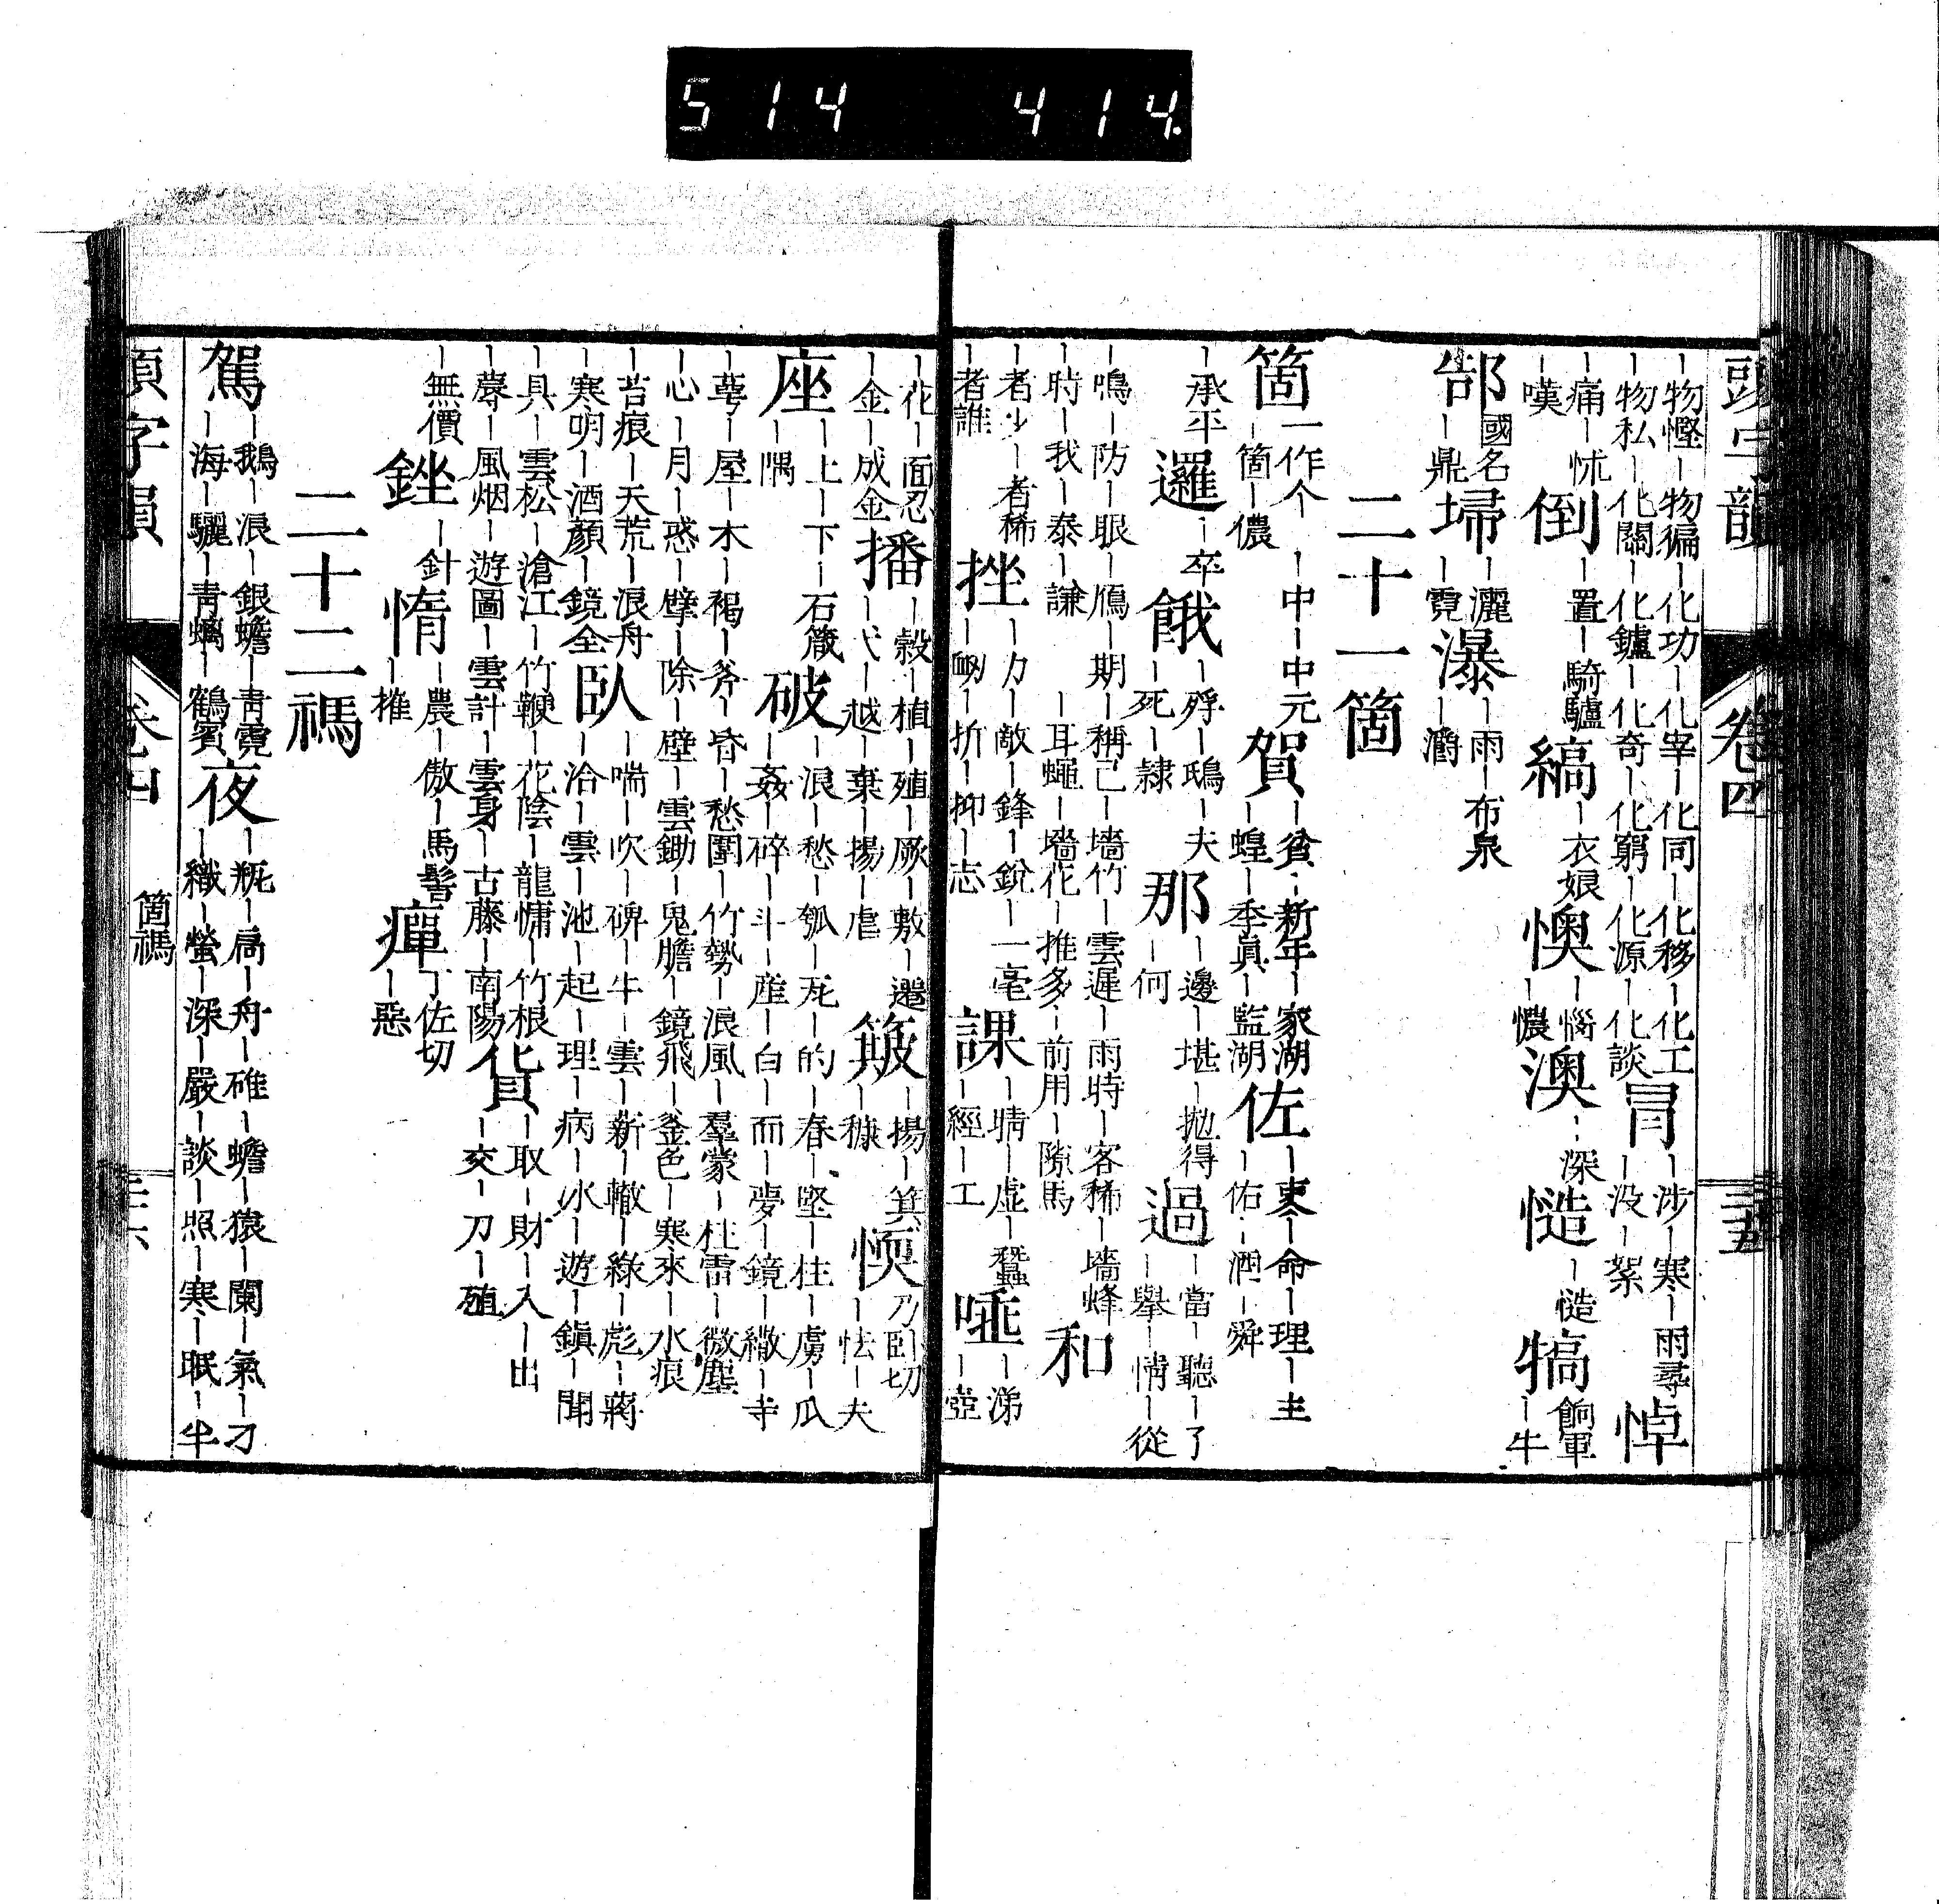 514 414.
頭字韻 卷四 三五
丨物慳丨物徧丨化功丨化宰丨化同丨化移丨化工
丨物私丨化關丨化鑪丨化奇丨化窮丨化源丨化談
冒丨涉丨寒丨雨尋
丨没丨絮
悼
痛丨怵
丨嘆
倒丨置丨騎驢
縞丨衣娘
懊丨惱
丨憹
澳丨深
慥丨慥
犒餉軍
丨牛
郜國名
丨鼎
埽丨灑
丨霓
瀑丨雨丨布泉
丨灂
二十一箇
箇一作个丨中丨中元
丨箇丨儂
賀丨貧丨新年丨家湖
丨蝗丨季眞丨監湖
佐丨吏丨命丨理丨主
丨佑丨潤丨舜
丨承平
邏丨卒
餓丨殍丨鴟丨夫
丨死丨隸
那丨邊丨堪丨拋得
丨何
過丨當丨聽丨了
丨舉丨情丨從
丨鳴丨防丨眼丨鴈丨期丨稱己丨墻竹丨雲遲丨雨時丨客稀丨墻蜂
丨時丨我丨泰丨謙丨耳蠅丨墻花丨推多丨前用丨隙馬
和
丨者少丨者稀
丨者誰
挫丨力丨敵丨鋒丨銳丨一毫
丨衂丨折丨抑丨志
課丨晴丨虛丨蠶
丨經丨工
唾丨涕
丨壺
丨花丨面忍
丨金丨成金
播丨穀丨植丨殖丨厥丨敷丨遷
丨弋丨越丨棄丨揚丨虐
簸丨揚丨箕
丨糠
愞乃卧切
丨怯丨夫
座丨上丨下丨石箴
丨隅
破丨浪丨愁丨瓠丨瓦丨的丨春丨堅丨柱丨虜丨瓜
丨姦丨碎丨斗丨産丨白丨而丨夢丨鏡丨繖丨寺
丨萼丨屋丨木丨褐丨斧丨昏丨愁圍丨竹勢丨浪風丨羣蒙丨柱雷丨微塵
丨心丨月丨惑丨擘丨除丨壁丨雲鋤丨鬼膽丨鏡飛丨釜色丨寒來丨水痕
丨苔痕丨天荒丨浪舟
丨寒明丨酒顏丨鏡全
臥丨喘丨吹丨碑丨牛丨雲丨薪丨轍丨綠丨彪丨蔣
丨治丨雲丨池丨起丨理丨病丨冰丨遊丨鎭丨聞
丨具丨雲松丨滄江丨竹鞭丨花陰丨龍慵丨竹根
丨蓐丨風烟丨遊圖丨雲計丨雲身丨古藤丨南陽
貨丨取丨財丨入丨出
丨交丨刀丨殖
丨無價
銼丨針
惰丨農丨傲丨馬髻
丨摧
癉丁佐切
丨惡
二十二禡
駕丨鵝丨浪丨銀蟾丨靑霓
丨海丨驪丨靑螭丨鶴賓
夜丨瓶丨扃丨舟丨碓丨蟾丨猿丨闌丨氣丨刁
丨織丨螢丨深丨嚴丨談丨照丨寒丨眠丨半
頭字韻 卷四 箇禡 三六